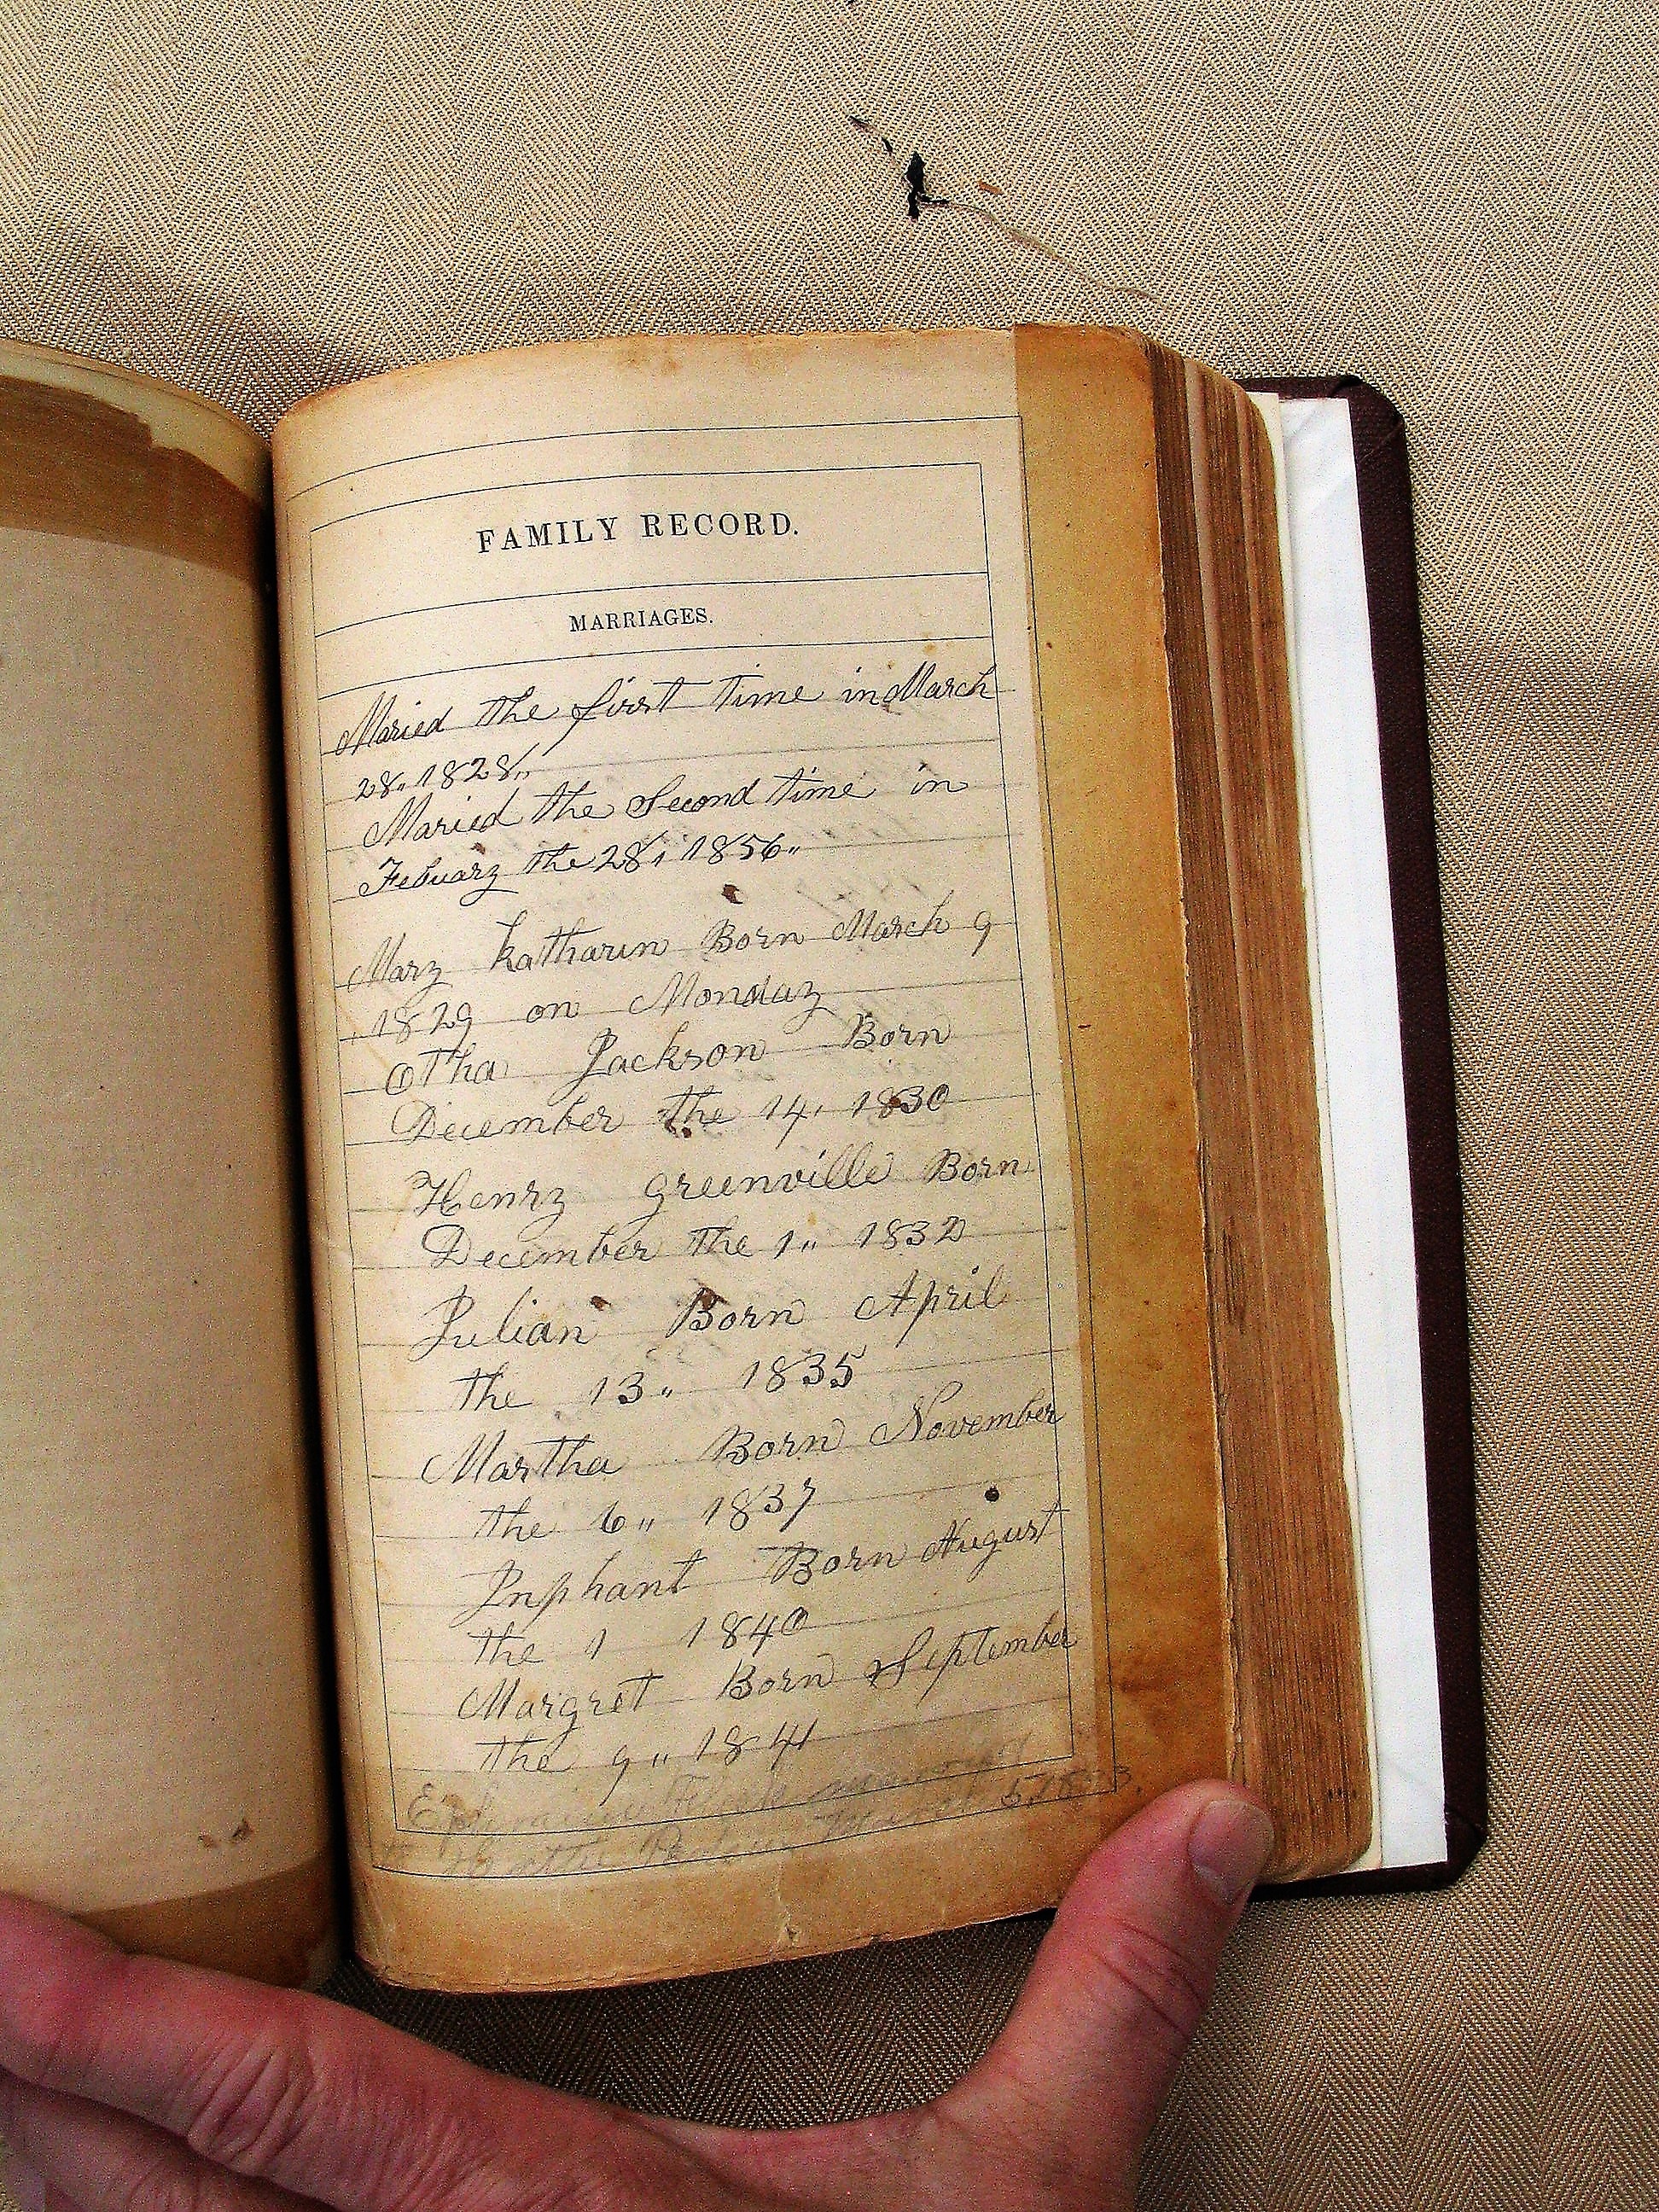 FAMILY RECORD.
MARRIAGES.
Maried the first time in March
28,, 1828,,
Maried the Second time in
Febuary the 28, 1856,,
Mary Katharin Born March 9
1829 on Monday
Otha Jackson Born
December the 14, 1830
Henry Greenville Born
December the 1,, 1832
Julian Born April
the 13,, 1835
Martha Born November
the 6,, 1837
Inphant Born August
the 1 1840
Margret Born September
the 9,, 1841